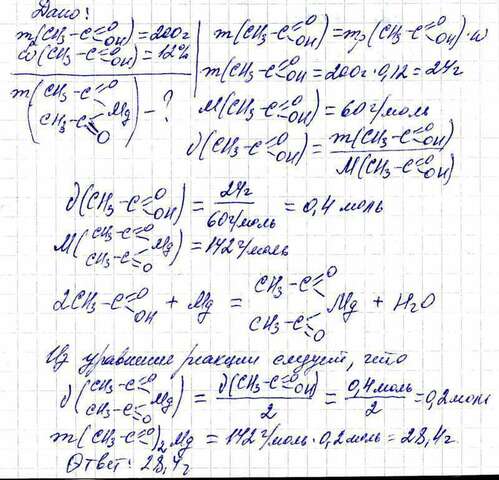 Дано:
m(CH₃-C=O OH) = 200г
ω(CH₃-C=O OH) = 12%
m(CH₃-C=O CH₃-C=O Mg) - ?
m(CH₃-C=O OH) = mр(CH₃-C=O OH)·ω
m(CH₃-C=O OH) = 200г·0,12 = 24г
M(CH₃-C=O OH) = 60г/моль
ν(CH₃-C=O OH) = m(CH₃-C=O OH) / M(CH₃-C=O OH)
ν(CH₃-C=O OH) = 24г / 60г/моль = 0,4 моль
M(CH₃-C=O CH₃-C=O Mg) = 142г/моль
2CH₃-C=O OH + Mg = CH₃-C=O CH₃-C=O Mg + H₂O
Из уравнение реакции следует, что
ν(CH₃-C=O CH₃-C=O Mg) = ν(CH₃-C=O OH) / 2 = 0,4моль / 2 = 0,2моль
m(CH₃-C=O)₂Mg = 142г/моль·0,2моль = 28,4г.
Ответ: 28,4г